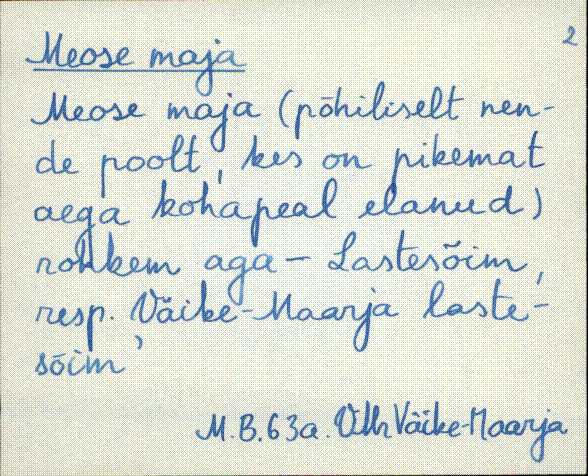 2
Meose maja
Meose maja (põhiliselt nen-
de poolt, kes on pikemat
aega kohapeal elanud)
rohkem aga - Lastesõim,
resp. Väike-Maarja laste-
sõim
M.B. 63a. Väike-Maarja